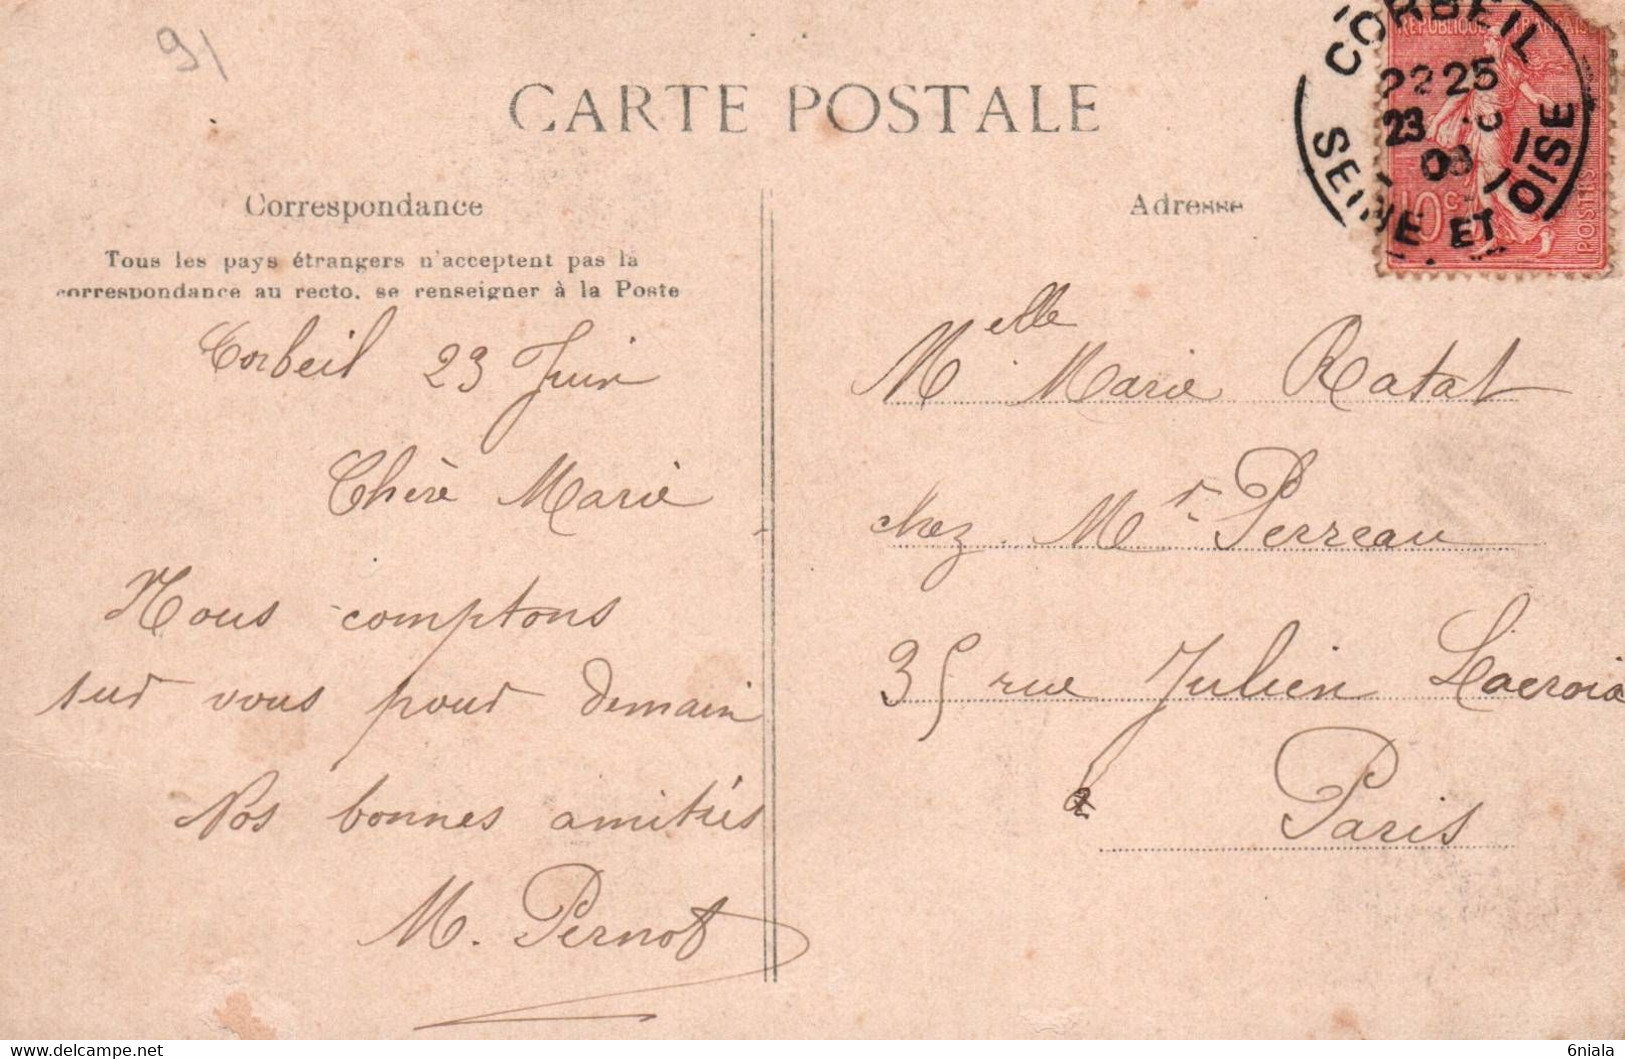 91
CARTE POSTALE
Correspondance
Tous les pays étrangers n'acceptent pas la
correspondance au recto, se renseigner à la Poste
Corbeil 23 Juin
Chère Marie
Nous comptons
sur vous pour demain
Nos bonnes amitiés
M. Pernot
Adresse
CORBEIL
22 25
23
SEINE ET OISE
REPUBLIQUE FRANÇAISE
10 c
POSTES
Melle Marie Ratat
chez Mr Perreau
35 rue Julien Lacroix
Paris
delcampe.net
6niala